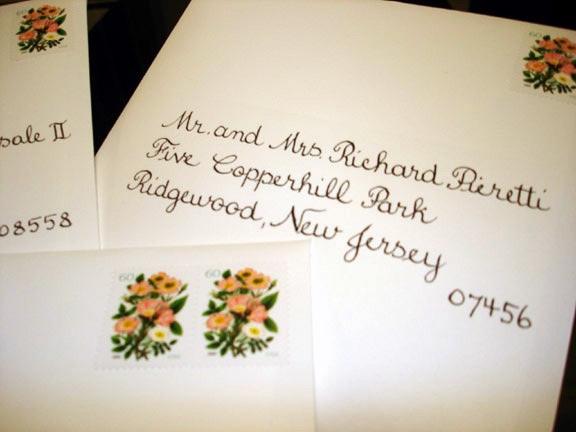 60
60
sale II
08558
Mr. and Mrs. Richard Pieretti
Five Copperhill Park
Ridgewood, New Jersey
07456
60
60